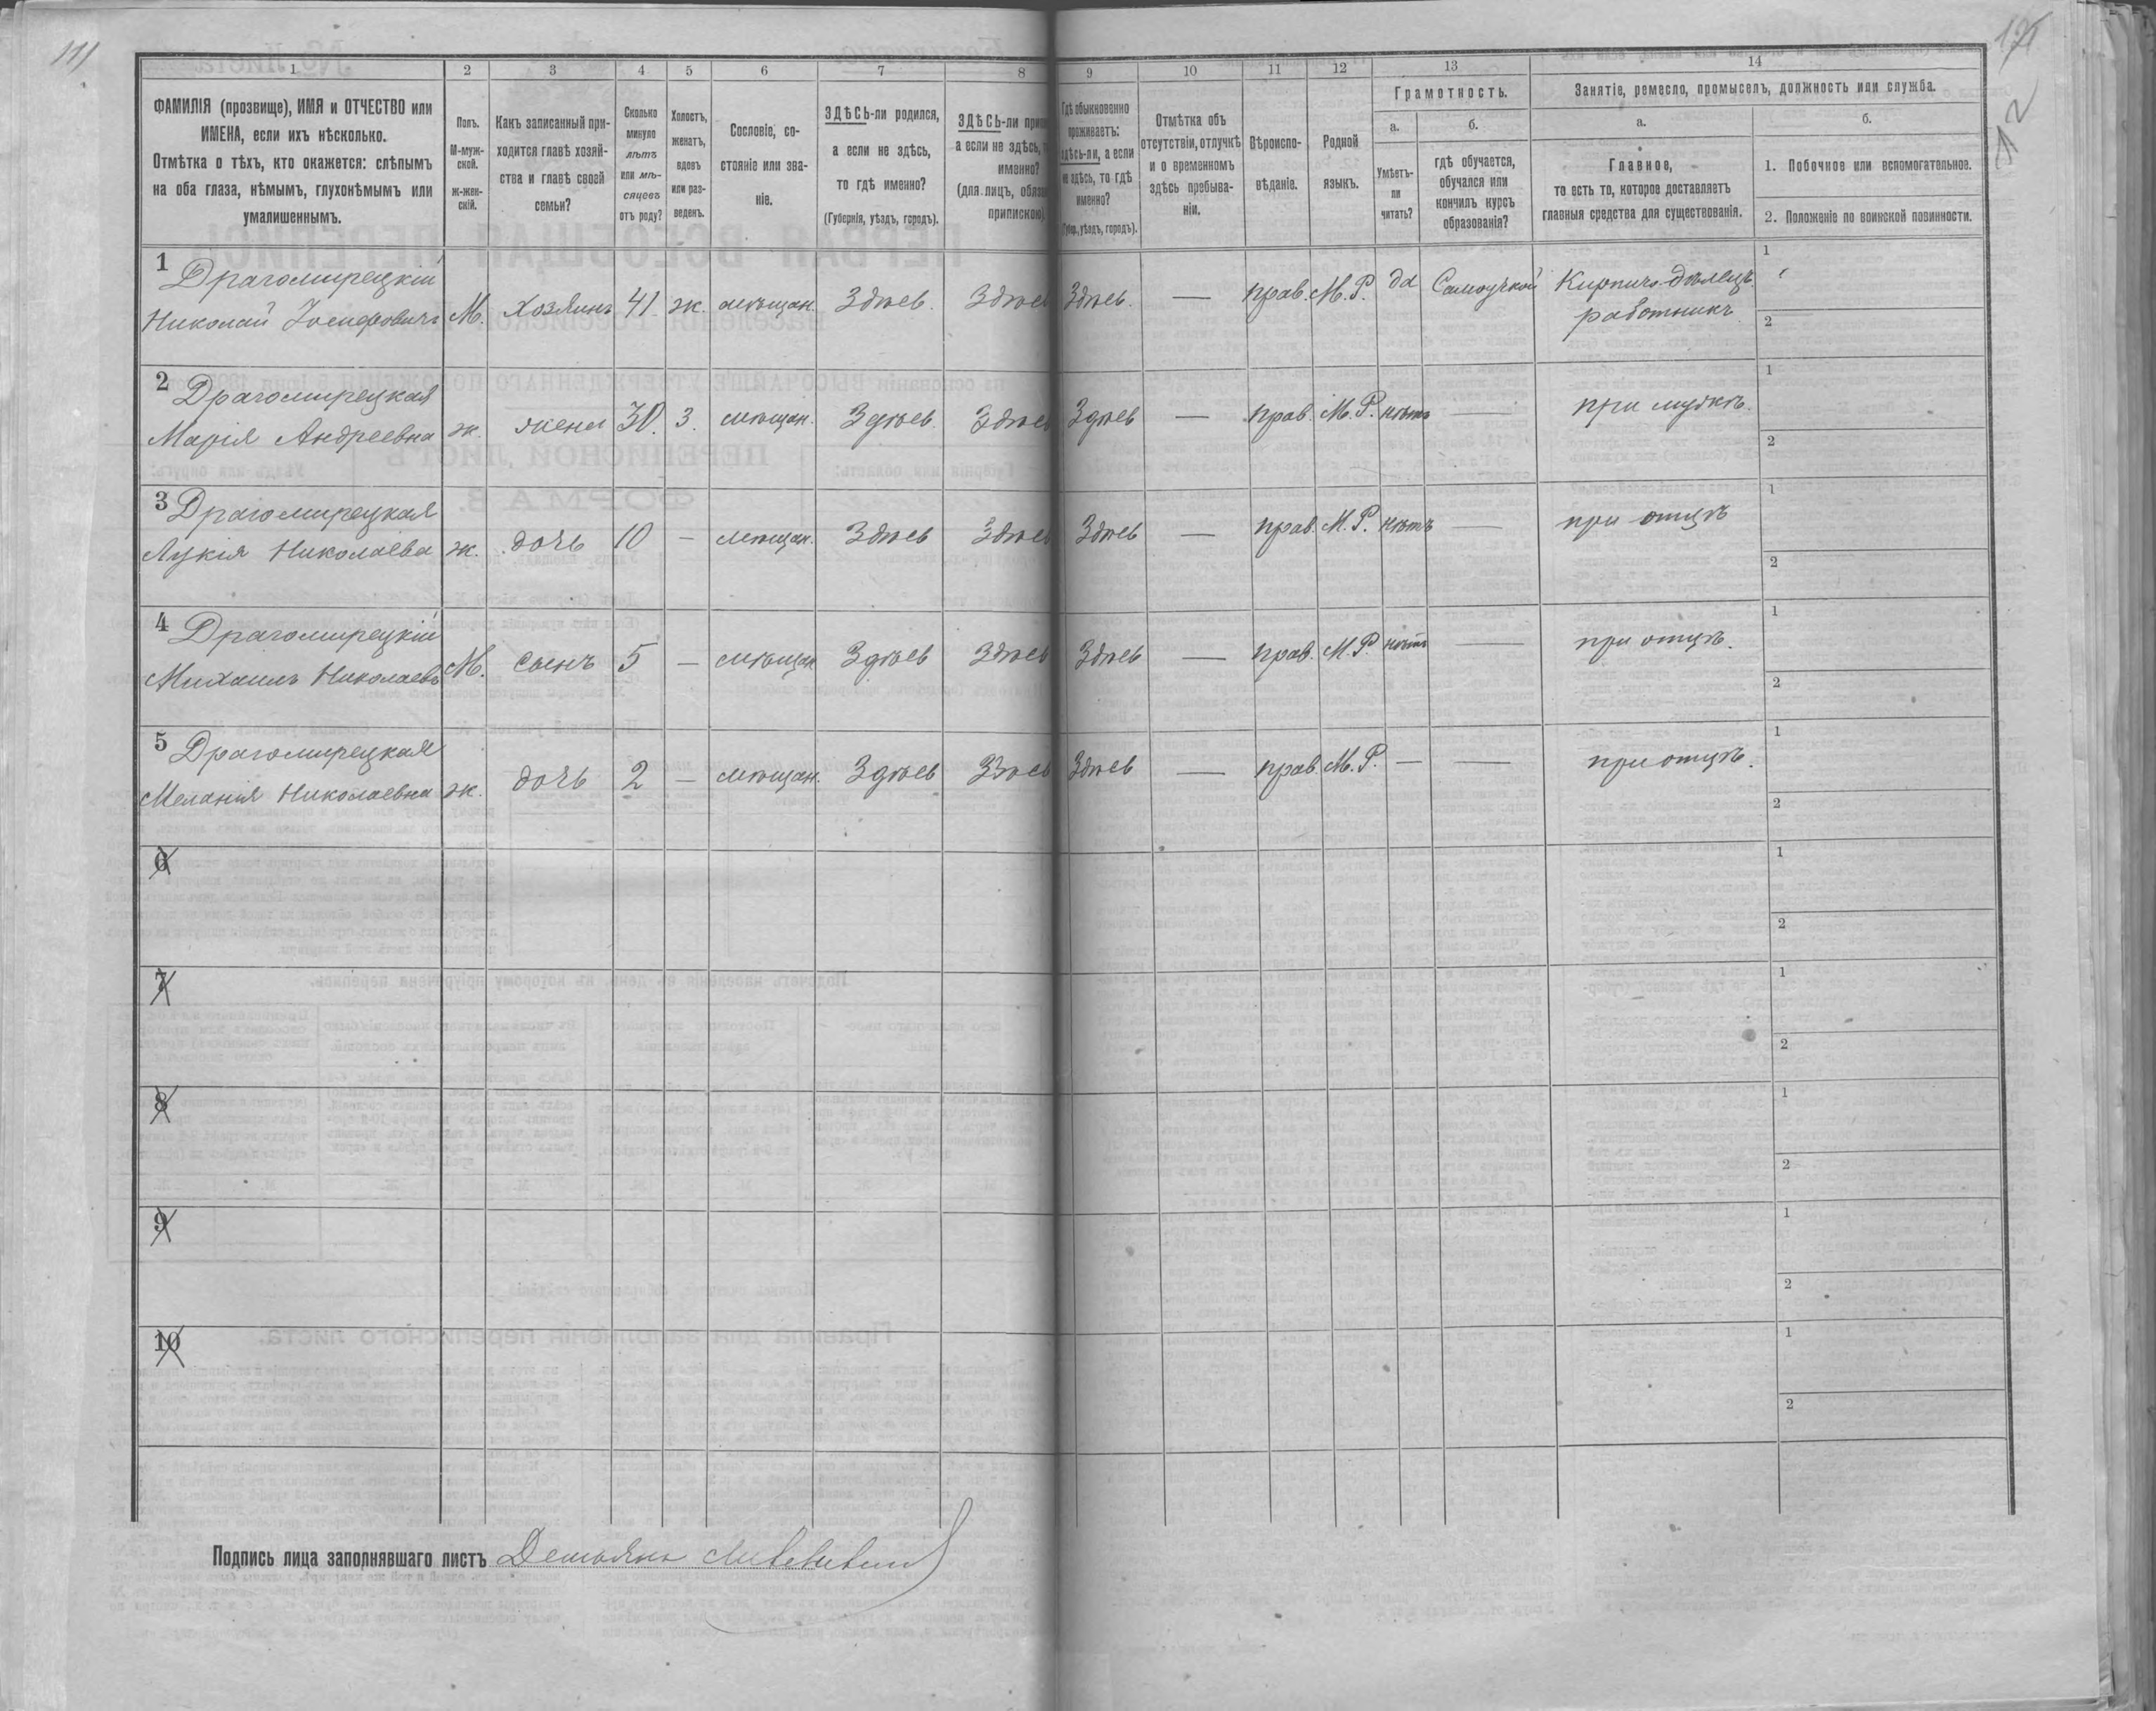 111
1 2 3 4 5 6 7 8 9 10 11 12 13 14
ФАМИЛІЯ (прозвище), ИМЯ и ОТЧЕСТВО или
ИМЕНА, если ихъ нѣсколько.
Отмѣтка о тѣхъ, кто окажется: слѣпымъ
на оба глаза, нѣмымъ, глухонѣмымъ или
умалишеннымъ.
Полъ.
М-муж-
ской.
Ж-жен-
скій.
Какъ записанный при-
ходится главѣ хозяй-
ства и главѣ своей
семьи?
Сколько
минуло
лѣтъ
или мѣ-
сяцевъ
отъ роду?
Холостъ,
женатъ,
вдовъ
или раз-
веденъ.
Сословіе, со-
стояніе или зва-
ніе.
ЗДѢСЬ-ли родился,
а если не здѣсь,
то гдѣ именно?
(Губернія, уѣздъ, городъ).
ЗДѢСЬ-ли
а если не здѣсь,
именно?
(для лицъ,
припискою)
Гдѣ обыкновенно
проживаетъ:
здѣсь-ли, а если
не здѣсь, то гдѣ
именно?
(Губер., уѣздъ, городъ).
Отмѣтка объ
отсутствіи, отлучкѣ
и о временномъ
здѣсь пребыва-
ніи.
Вѣроиспо-
вѣданіе.
Родной
языкъ.
Грамотность.
а.
Умѣетъ-
ли
читать?
б.
гдѣ обучается,
обучался или
кончилъ курсъ
образованія?
Занятіе, ремесло, промыселъ, должность или служба.
а.
Главное,
то есть то, которое доставляетъ
главныя средства для существованія.
б.
1. Побочное или вспомогательное.
2. Положеніе по воинской повинности.
1 Драгомирецкій
Николай Іосифовичъ М. Хозяинъ 41 ж. мѣщан. Здѣсь. Здѣсь Здѣсь. — прав. М.Р. да Самоучкой Кирпичо-дѣлецъ
работникъ
1
2
2 Драгомирецкая
Марія Андреевна ж. жена 30. з. мѣщан. Здѣсь. Здѣсь Здѣсь — прав. М.Р. нѣтъ — при мужѣ.
1
2
3 Драгомирецкая
Лукія Николаева ж. дочь 10 — мѣщан. Здѣсь Здѣсь Здѣсь — прав. М.Р. нѣтъ — при отцѣ
1
2
4 Драгомирецкій
Михаилъ Николаевъ М. сынъ 5 — мѣщан Здѣсь Здѣсь Здѣсь — прав. М.Р. нѣтъ — при отцѣ.
1
2
5 Драгомирецкая
Меланія Николаевна ж. дочь 2 — мѣщан. Здѣсь Здѣсь Здѣсь — прав. М.Р. — — при отцѣ.
1
2
6
1
2
7
1
2
8
1
2
9
1
2
10
1
2
Подпись лица заполнявшаго листъ Демьянъ